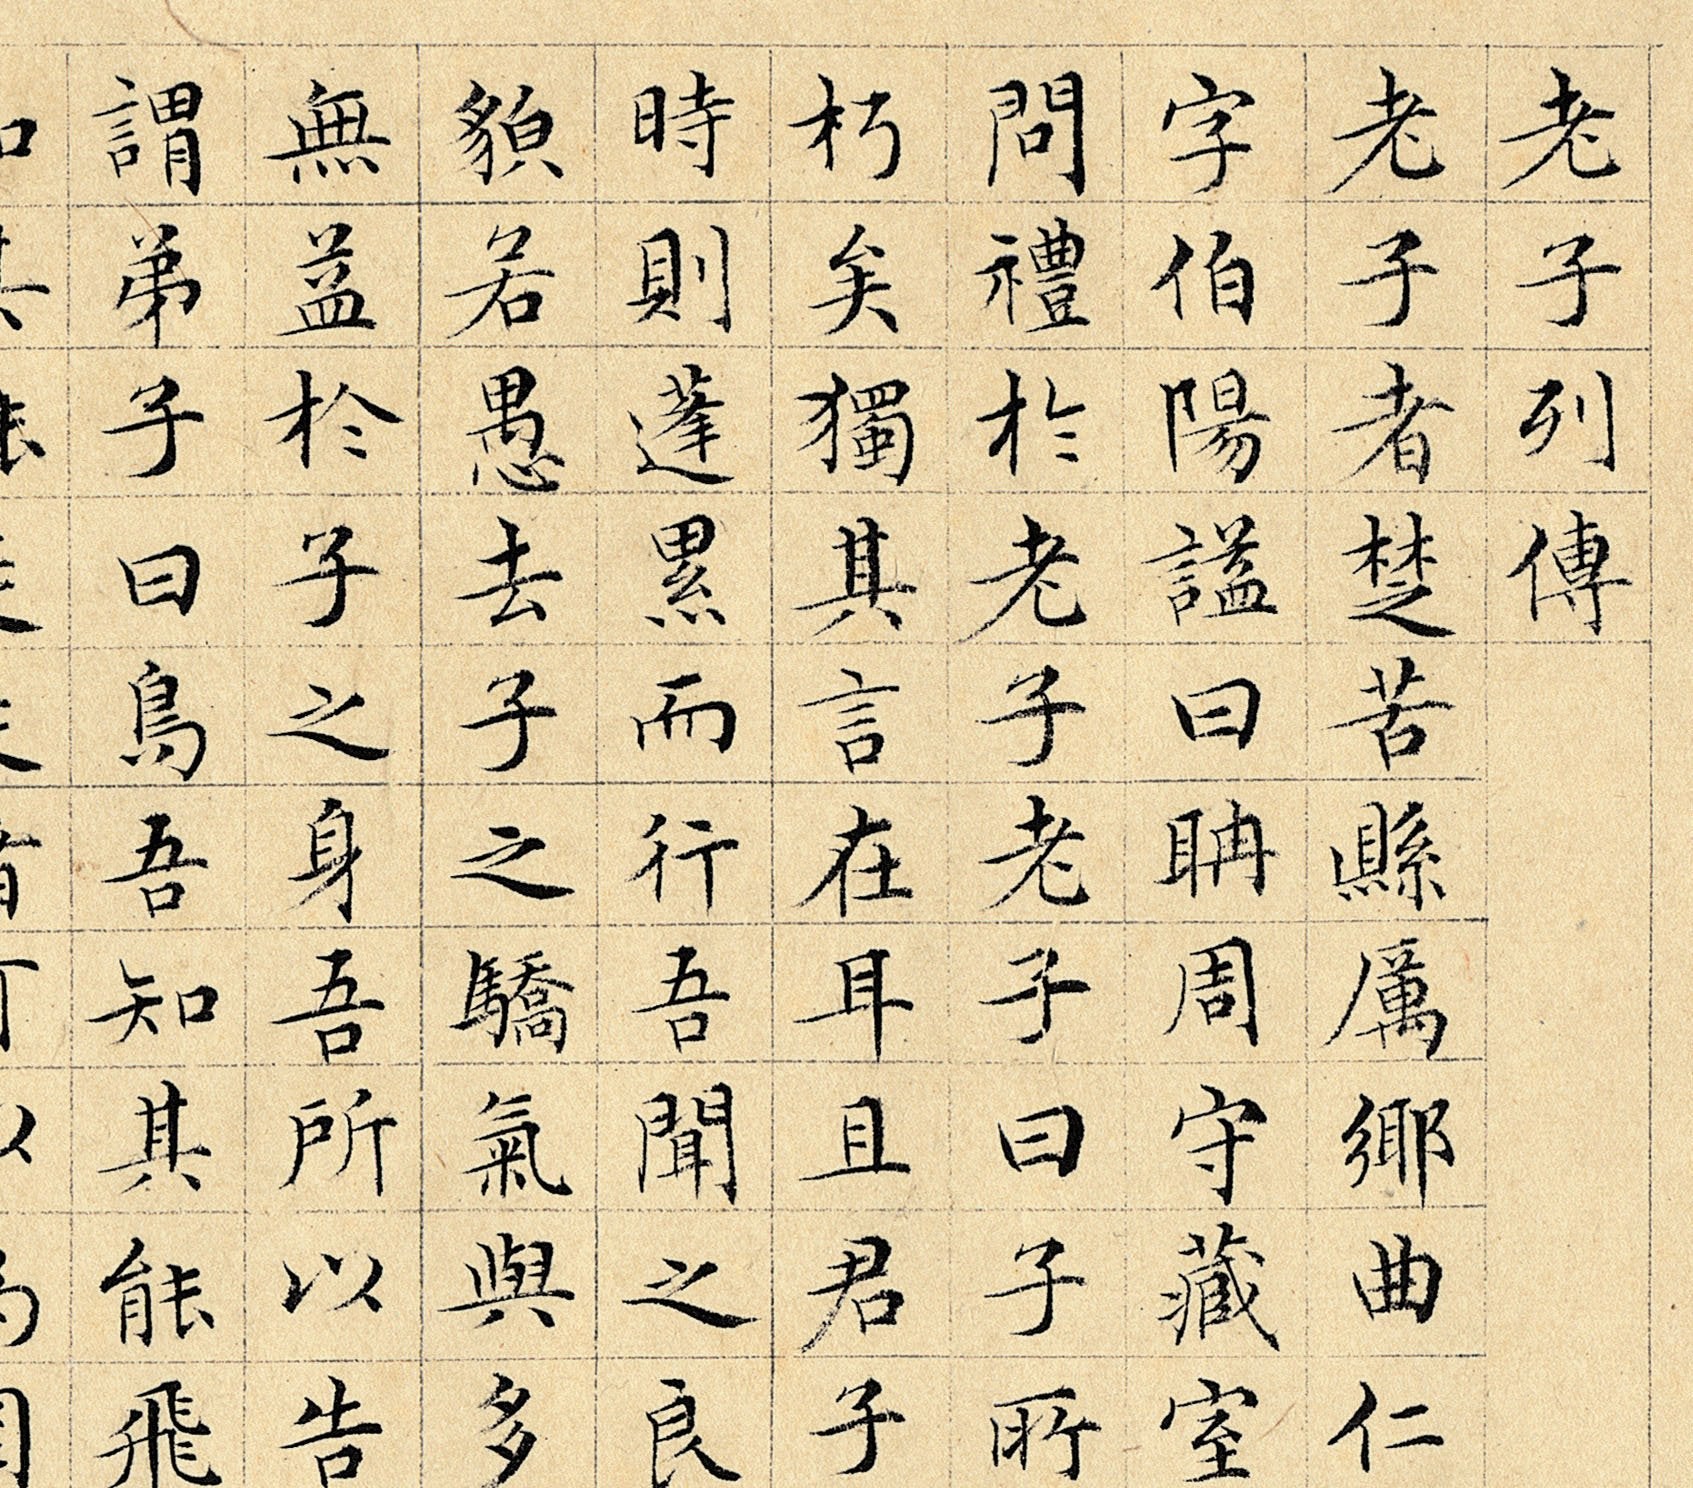 老子列傳
老子者楚苦縣厲鄉曲仁
字伯陽諡曰聃周守藏室
問禮於老子老子曰子所
朽矣獨其言在耳且君子
時則蓬累而行吾聞之良
貌若愚去子之驕氣與多
無益於子之身吾所以告
謂弟子曰鳥吾知其能飛